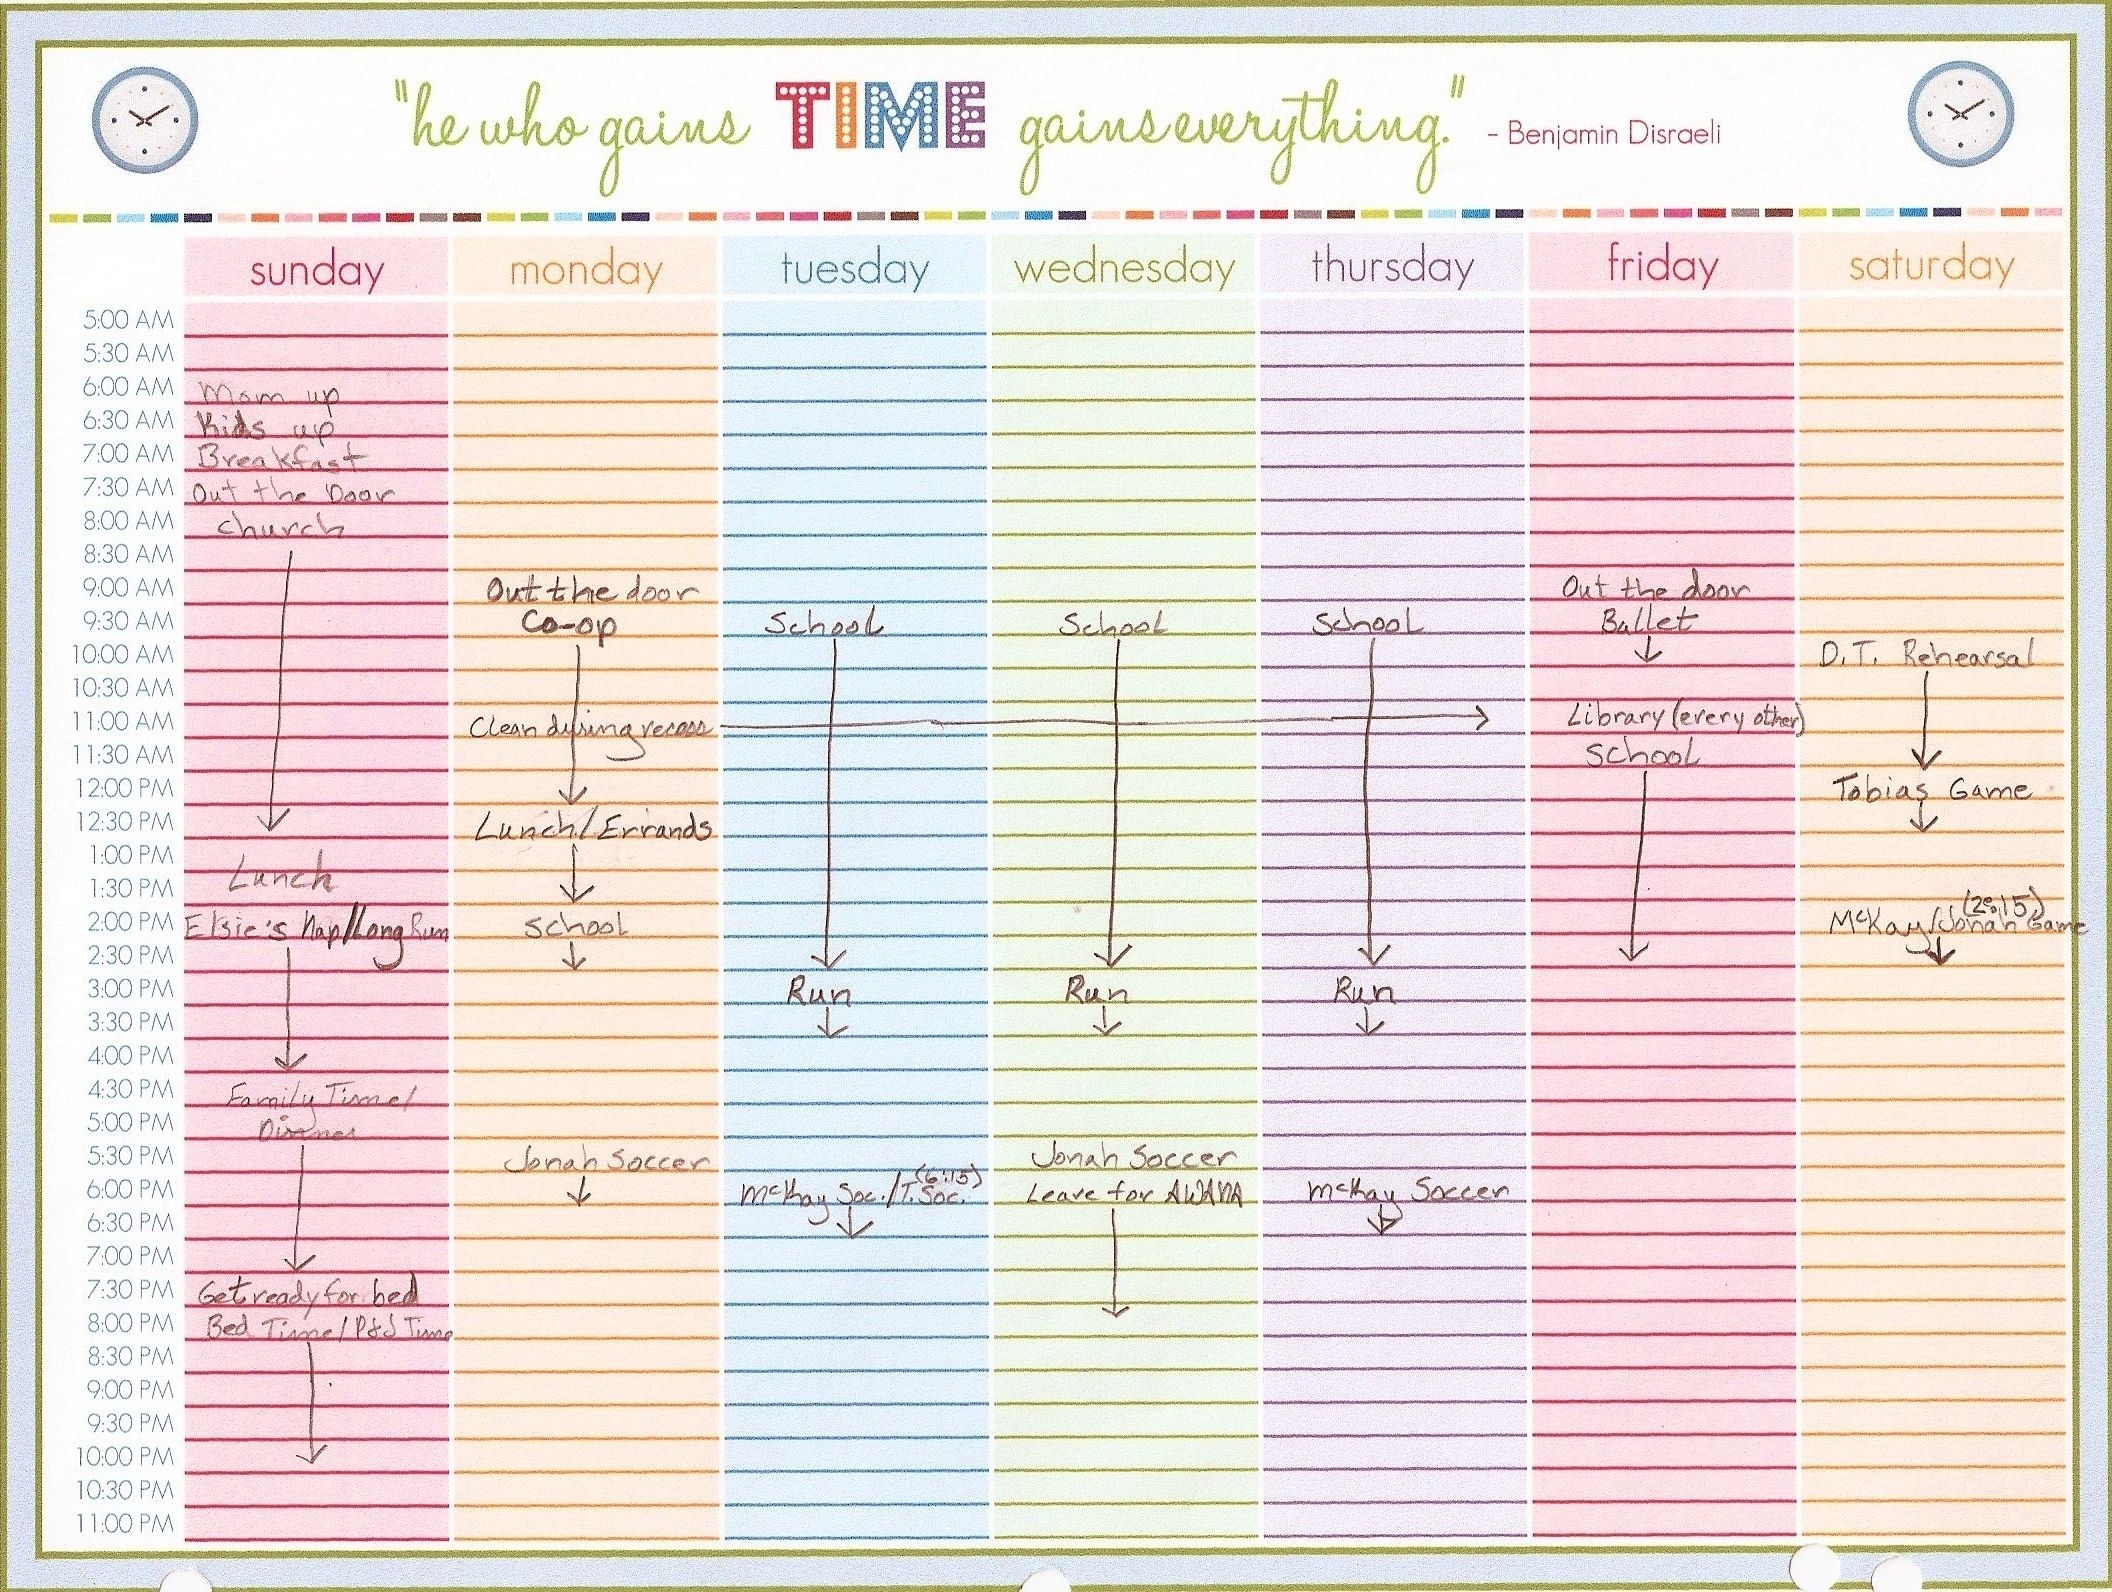 "he who gains TIME gains everything." - Benjamin Disraeli
sunday monday tuesday wednesday thursday friday saturday
5:00 AM
5:30 AM
6:00 AM Mom up
6:30 AM Kids up
7:00 AM Breakfast
7:30 AM Out the Door
8:00 AM Church
8:30 AM
9:00 AM Out the door Out the door
9:30 AM Co-op School School School Ballet
10:00 AM D.T. Rehearsal
10:30 AM
11:00 AM Clean during recess Library (every other)
11:30 AM School
12:00 PM Tobias Game
12:30 PM Lunch/Errands
1:00 PM
1:30 PM Lunch
(2:15)
2:00 PM Elsie's Nap/Long Run School McKay/Jonah Game
2:30 PM
3:00 PM Run Run Run
3:30 PM
4:00 PM
4:30 PM Family Time/
5:00 PM Dinner
5:30 PM Jonah Soccer Jonah Soccer
(6:15)
6:00 PM McKay Soc./T. Soc. Leave for AWANA McKay Soccer
6:30 PM
7:00 PM
7:30 PM Get ready for bed
8:00 PM Bed Time/P&J Time
8:30 PM
9:00 PM
9:30 PM
10:00 PM
10:30 PM
11:00 PM